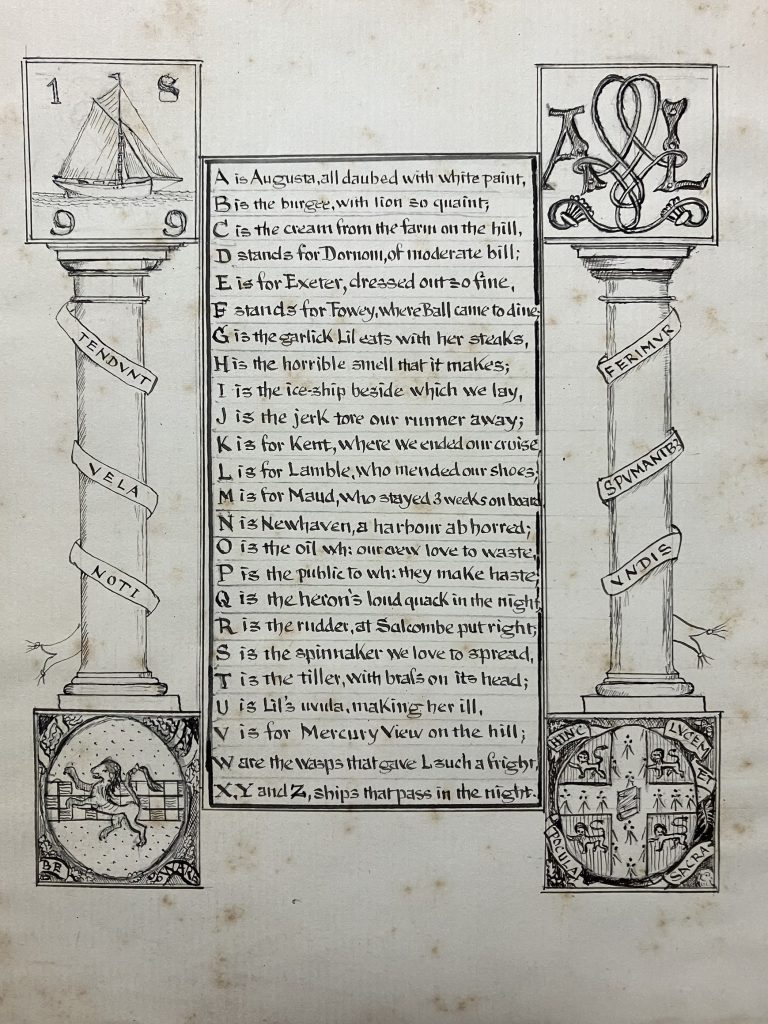 1 8
9 9
A L
TENDVNT
VELA
NOTI
A is Augusta, all daubed with white paint,
B is the burgee, with lion so quaint;
C is the cream from the farm on the hill,
D stands for Dornom, of moderate bill;
E is for Exeter, dressed out so fine,
F stands for Fowey, where Ball came to dine;
G is the garlick Lil eats with her steaks,
H is the horrible smell that it makes;
I is the ice-ship beside which we lay,
J is the jerk tore our runner away;
K is for Kent, where we ended our cruise,
L is for Lamble, who mended our shoes;
M is for Maud, who stayed 3 weeks on board,
N is Newhaven, a harbour abhorred;
O is the oil wh: our crew love to waste,
P is the public to wh: they make haste;
Q is the heron's loud quack in the night,
R is the rudder, at Salcombe put right;
S is the spinnaker we love to spread,
T is the tiller, with brass on its head;
U is Lil's uvula, making her ill,
V is for Mercury View on the hill;
W are the wasps that gave L such a fright,
X, Y and Z, ships that pass in the night.
FERIMVR
SPVMANTIB3
VNDIS
BE WARE
HINC LVCEM ET
POCVLA SACRA